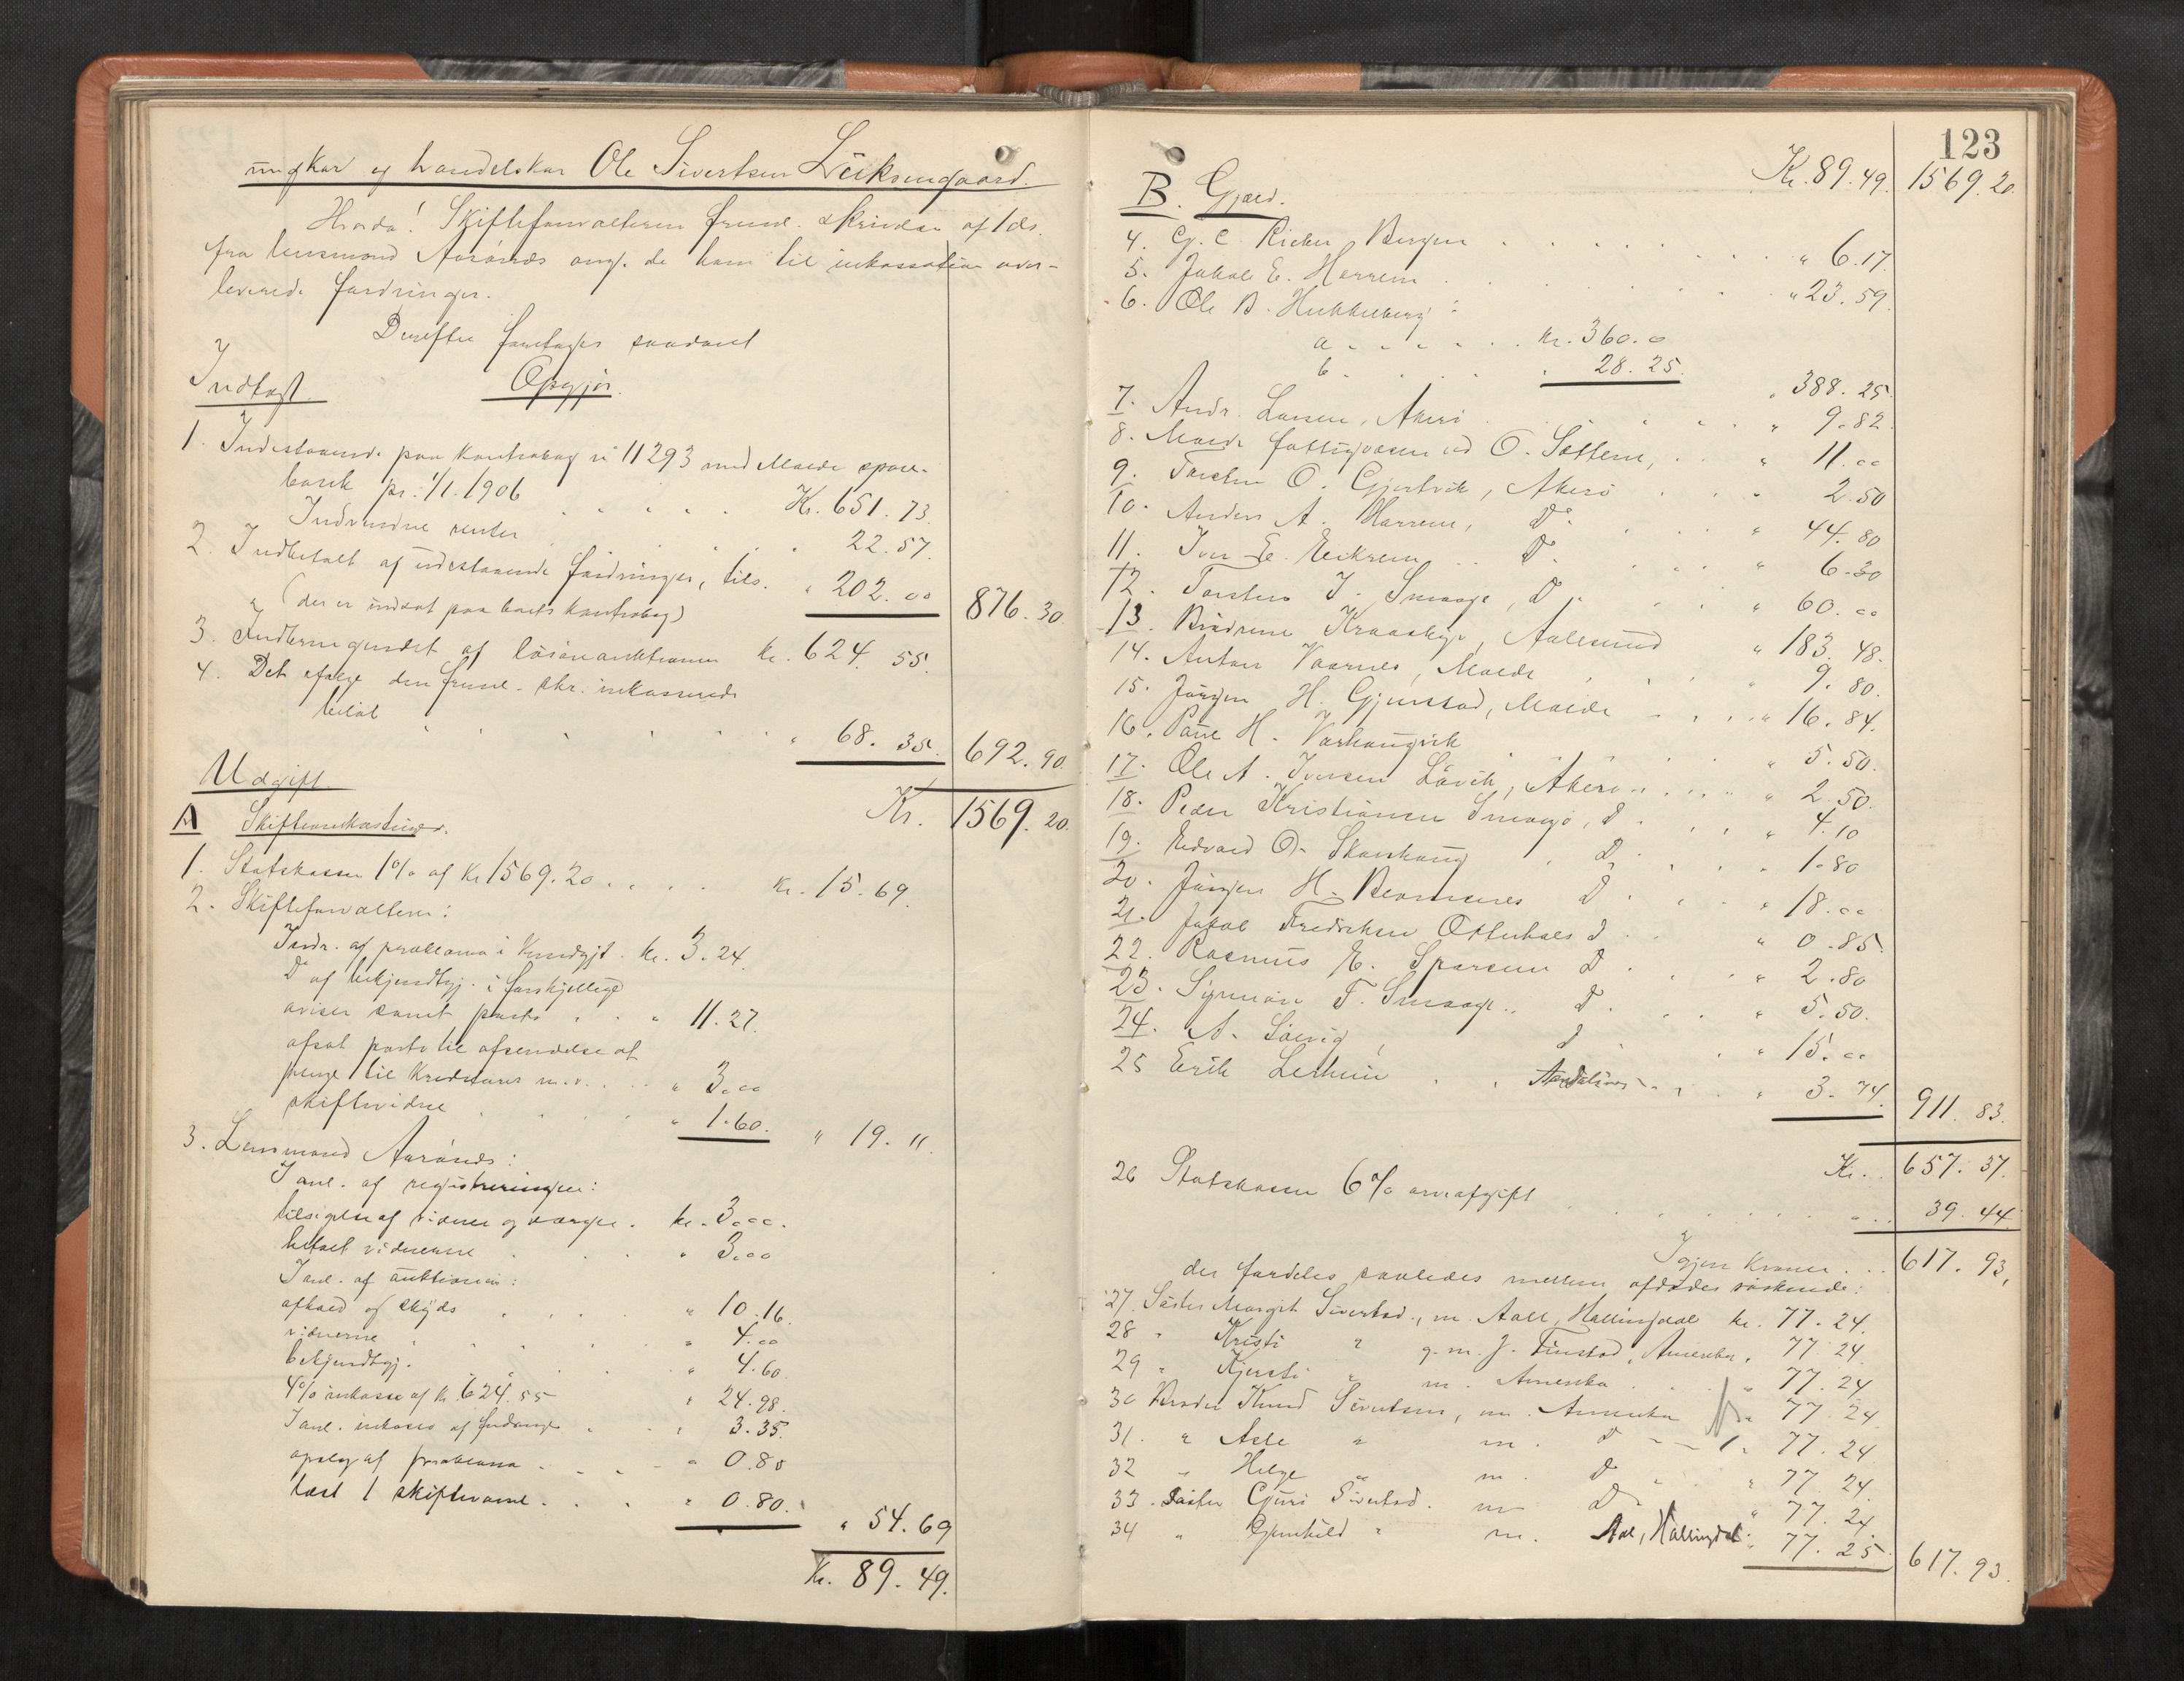 ungkar og handelskar Ole Sivertsen Leiksengaard.
Hvorda! Skifteforvalteren freml. skrivelse af 1 ds.
fra lensmand Aarønes ang. de ham til inkassation over-
leverede fordringer.
Derefter foretages saadant
Opgjør.
Indtægt.
1. Indestaaende paa kontrabog nr 11293 med Molde spare-
bank pr. 1/1. 1906 . . . . . Kr. 651. 73.
Indvundne renter . . . . . 22. 57.
2. Indbetalt af udestaaende fordringer, tils. " 202. 00
(der er indsat paa bankkontrabog) 876. 30.
3. Indkommet af løsøreauktionen kr. 624. 55.
4. Det ifølge den freml. skr. inkasserede
beløb . . . . . " 68. 35. 692. 90.
Kr. 1569. 20.
Udgift.
A Skifteomkostninger.
1. Statskassen 1% af kr 1569. 20 . . . . kr. 15. 69.
2. Skifteforvalteren:
Indr. af proklama i Kundgjt. kr. 3. 24.
Do af bekjendtgj. i forskjellige
aviser samt porto . . " 11. 27.
afsat porto til afsendelse af
penge til kreditorer m.v. . . " 3. 00
skiftevidne . . . . " 1. 60. " 19. 11.
3. Lensmand Aarønes:
I anl. af registreringen:
tilsigelse af vidner og værger. kr. 3. 00.
betalt vidnerne . . . " 3. 00
I anl. af auktionen:
afhold og skyds . . . " 10. 16.
vidnerne . . . . " 4. 00
bekjendtgj. . . . . " 4. 60.
4% inkasso af kr. 624. 55 " 24. 98.
I anl. inkasso af fordringer . . " 3. 35.
opslag af proklama . . . " 0. 80
læst 1 skiftevarsel . . . " 0. 80. " 54. 69
Kr. 89. 49.
123
Kr. 89. 49. 1569. 20.
B. Gjæld.
4. G. C. Rieber Bergen . . . . . " 6. 17.
5. Jakob E. Harrem . . . . . " 23. 59.
6. Ole B. Hukkelberg:
a . . . . . kr. 360. 0
b . . . . . " 28. 25. " 388. 25.
7. Andr. Larsen, Akerø . . . . " 9. 82.
8. Molde fattigvæsen ved O. Sættem, . . " 11. 00
9. Torsten O. Gjertvik, Akerø . . . 2. 50
10. Anders A. Harrem, Do. . . . " 44. 80
11. Iver E. Eikrem . . Do. . . . " 6. 30
12. Torsten J. Smaage, Do . . . " 60. 00
13. Brødrene Kraaskje, Aalesund " 183. 48.
14. Anton Vaarnes, Molde . . . " 9. 80.
15. Jørgen H. Gjendstad, Molde . . . " 16. 84.
16. Paul H. Varhaugvik . . . . " 5. 50.
17. Ole A. Iversen Løvik, Akerø . . . " 2. 50.
18. Peder Kristiansen Smage, Do . . . " 4. 10
19. Edvard O. Skarshaug . Do . . . " 1. 80
20. Jørgen H. Bjørnerem Do . . . " 18. 00
21. Jakob Fredriksen Otterhals Do . . " 0. 85.
22. Rasmus E. Sporsem Do . . . " 2. 80
23. Synnøve T. Smaage . . Do . . . " 5. 50.
24. A. Løvig, Do . . . " 15. 00
25 Erik Lethein . . Aandalsnes . . . " 3. 74. 911. 83.
Kr. . . 657. 37.
26 Statskassen 6% arveafgift . . . . . " . . 39. 44
Igjen kroner . . . 617. 93,
der fordeles saaledes mellem afdødes søskende:
27. Søster Margit Sivertsd., m. Aall, Hallingdal kr. 77. 24.
28 " Kristi " g. m. J. Finstad, Amerika, 77. 24
29 " Kjersti " m. Amerika . . . " 77. 24.
30 Broder Knud Sivertsen, m. Amerika " 77. 24.
31. " Asle " m. Do . . " 77. 24
32 " Helge " m. Do . . " 77. 24.
33. Søster Guri Sivertsd. m. Do . . " 77. 24.
34 " Gunhild " m. Aal, Hallingdal " 77. 25. 617. 93.